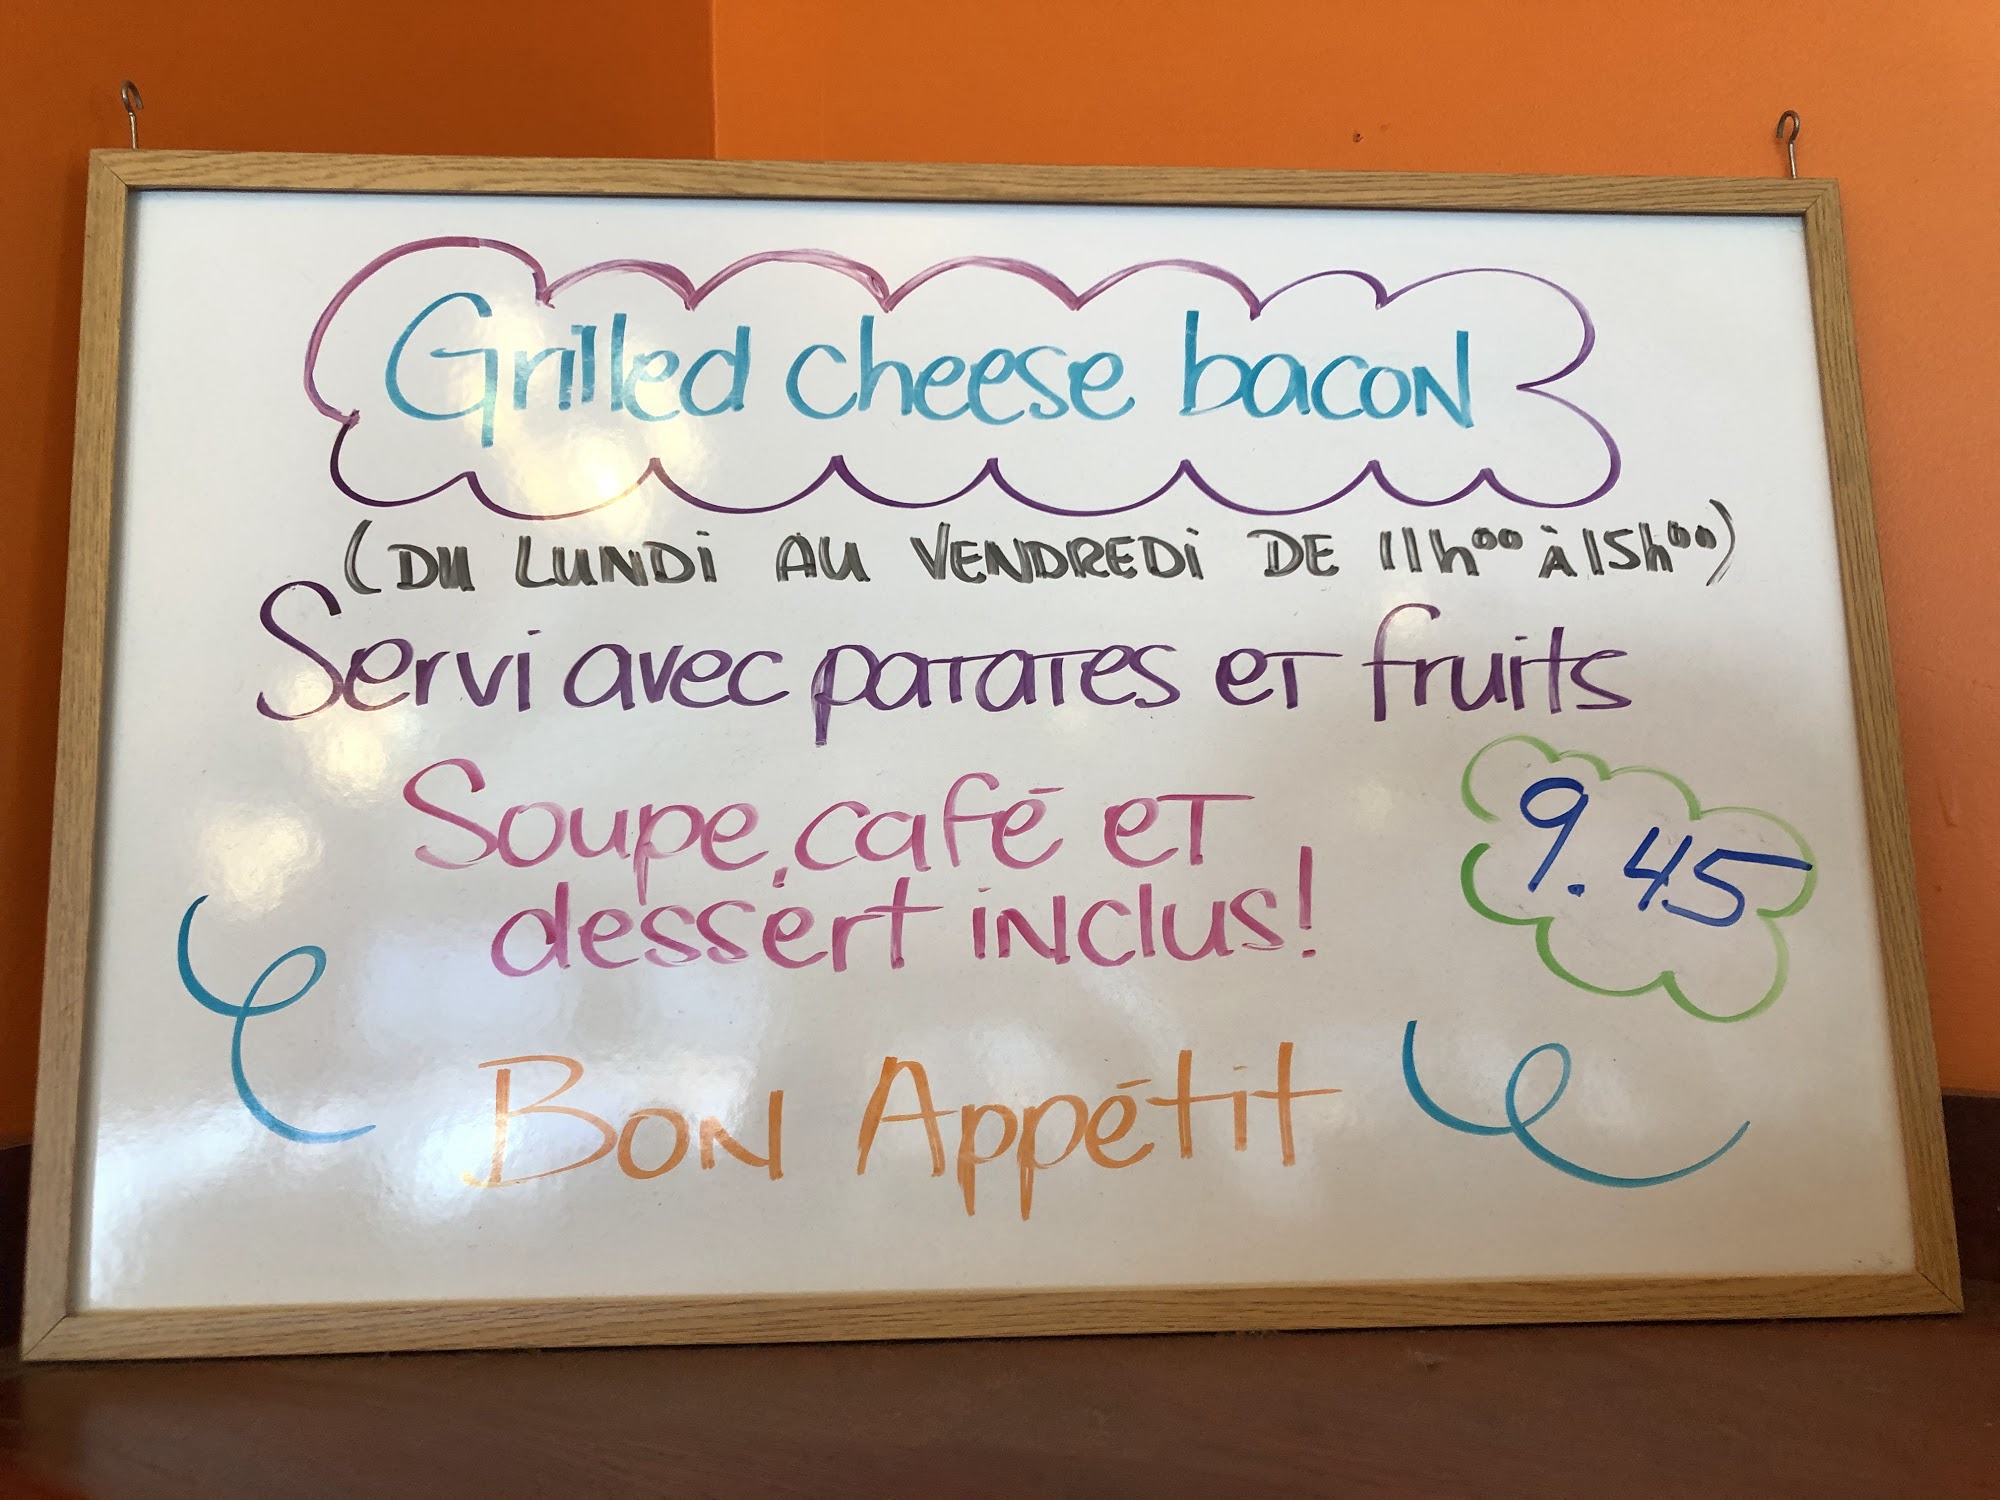 Grilled cheese bacon
(DU LUNDI AU VENDREDI DE 11h00 À 15h00)
Servi avec patates et fruits
Soupe, café et
dessert inclus!
9.45
Bon Appétit